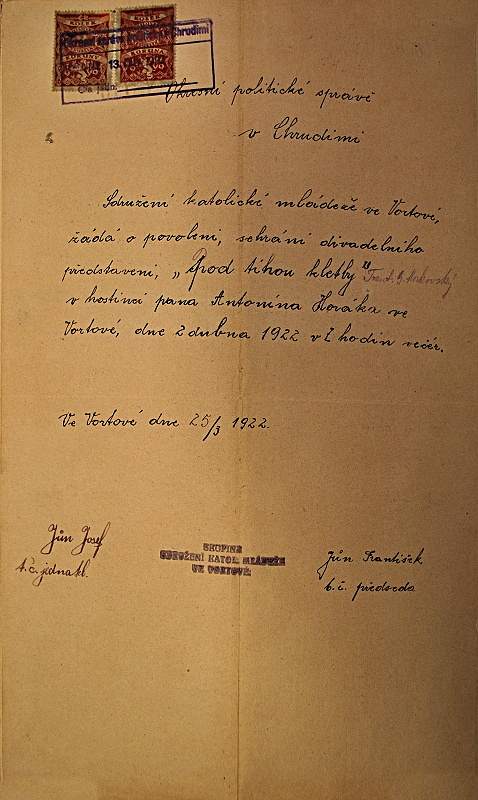 KOLEK KOLEK
KORUNA KORUNA
Chrudimi
Okresní politické správě
v Chrudimi
Sdružení katolické mládeže ve Vortové,
žádá o povolení, sehrání divadelního
představení, „Pod tíhou kletby"
v hostinci pana Antonína Nováka ve
Vortové, dne 2 dubna 1922 v 7 hodin večer.
Ve Vortové dne 25/3 1922.
Jůn Josef
t.č. jednatel.
SKUPINA
SDRUŽENÍ KATOL. MLÁDEŽE
VE VORTOVÉ
Jůn František
t.č. předseda